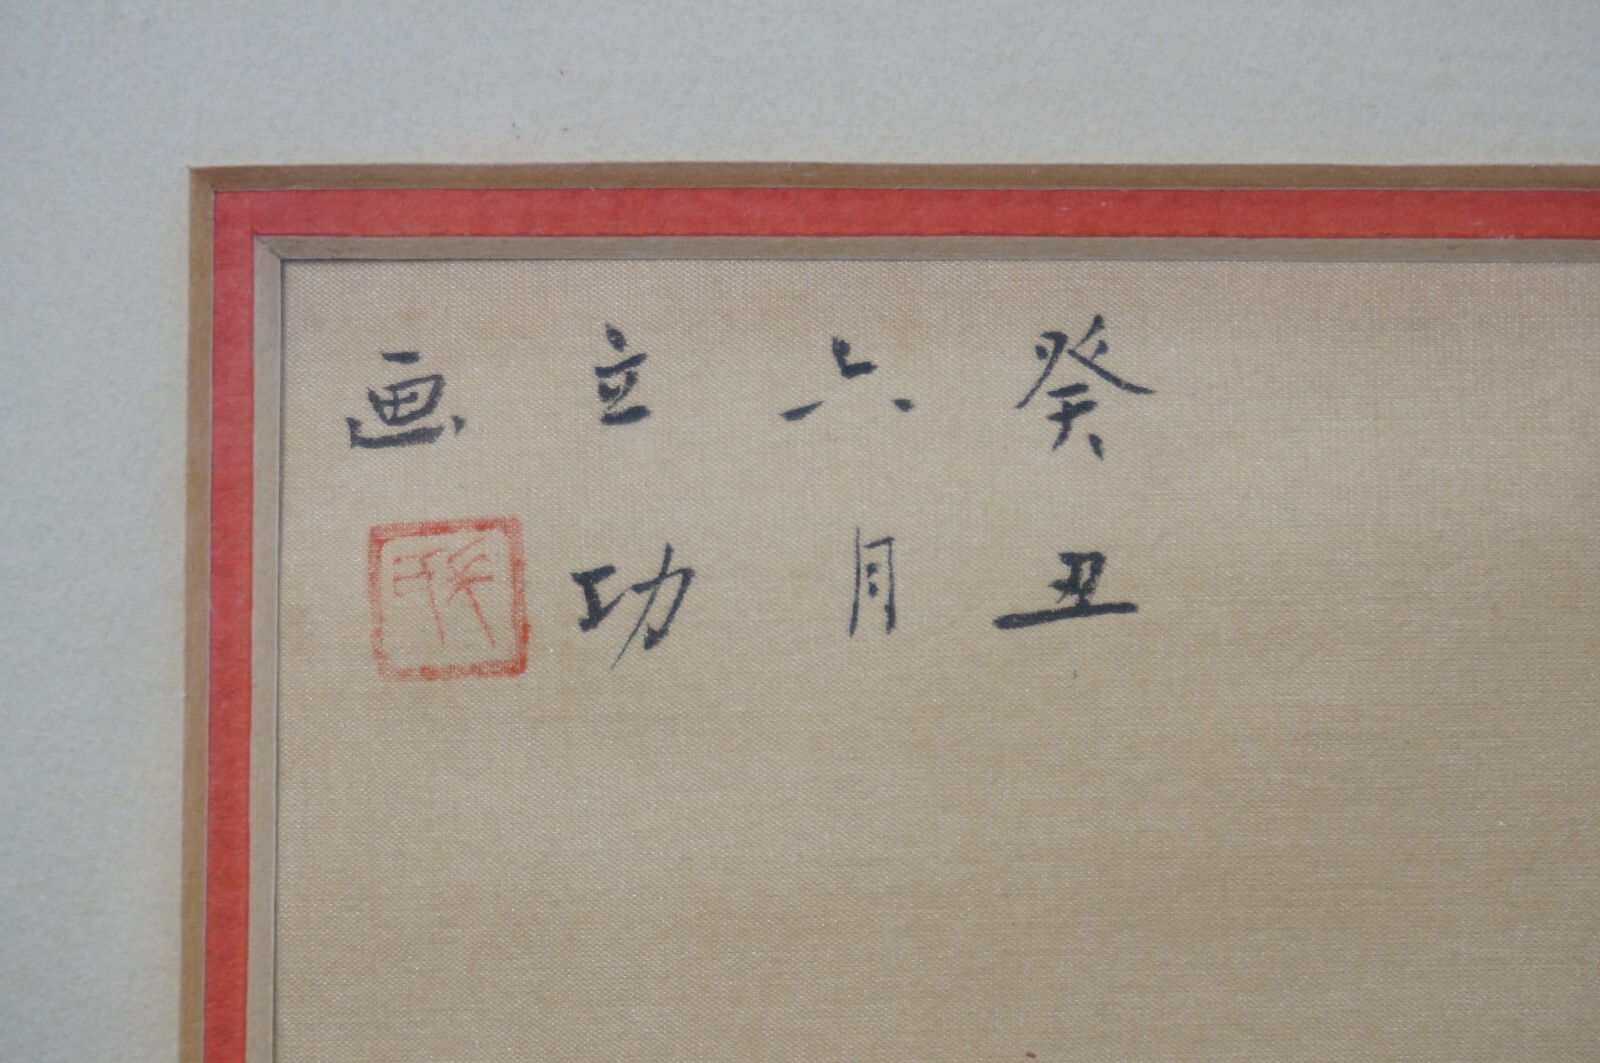 癸丑
六月
立功
画
孫